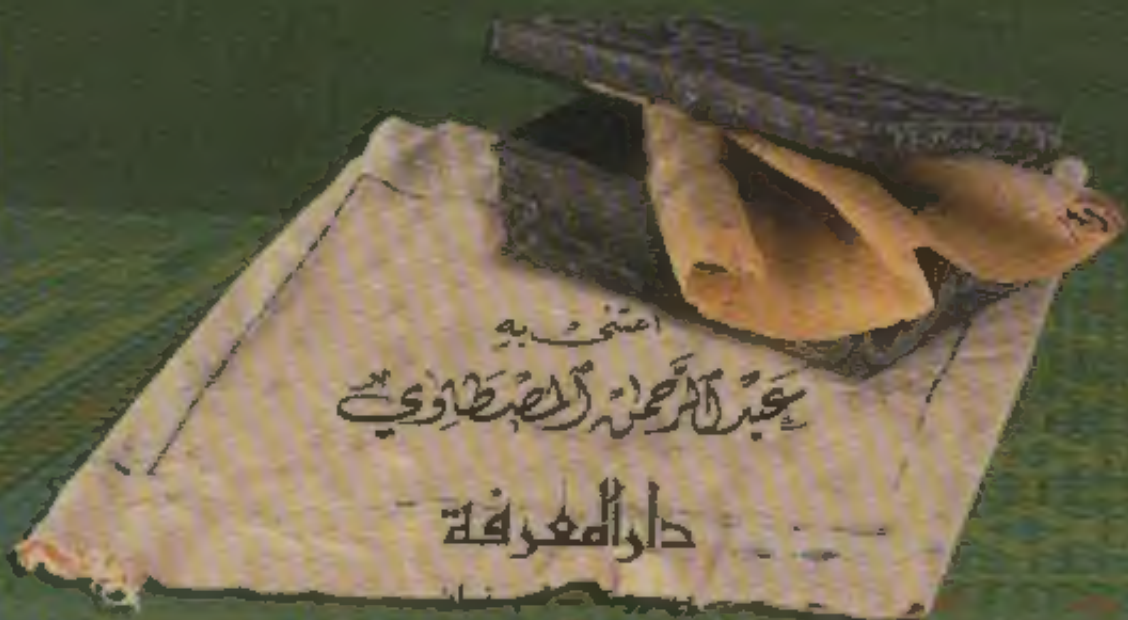 اعتنى به
عَبْد الرَّحمٰن المصْطَاوي
دار المعرفة